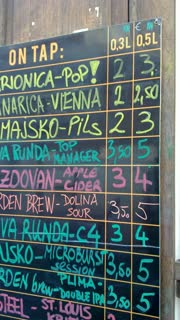 ON TAP: 0.3L 0.5L
RIONICA-POP! 2 3
NARICA-VIENNA 2 2,50
MAJSKO-PILS 2 3
VA RUNDA-TOP MANAGER 3,50 5
ZDOVAN-APPLE CIDER 3 4
RDEN BREW-DOLINA SOUR 3,50 5
VA RUNDA-C4 3 4
JSKO-MICROBURST SESSION 3,60 5
RDEN BREW-PLIMA-DOUBLE IPA 3,50 5
STEEL-ST. LOUIS